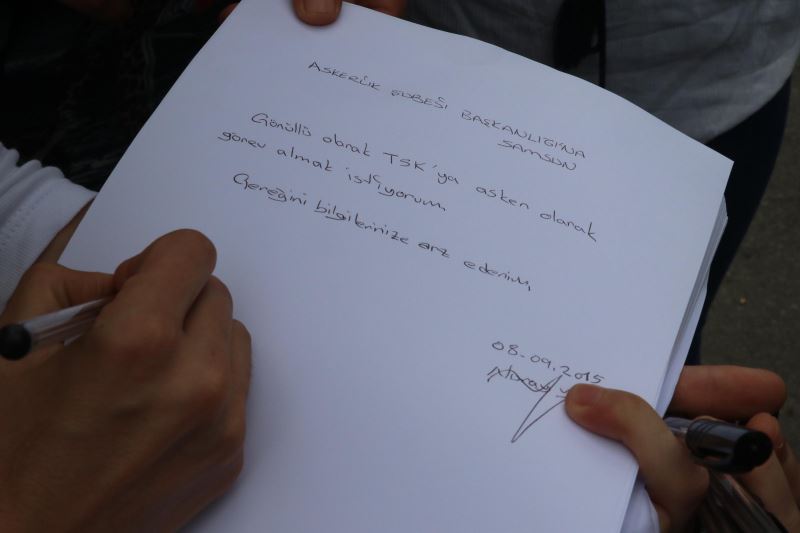 ASKERLİK ŞUBESİ BAŞKANLIĞI'NA
SAMSUN
Gönüllü olarak TSK'ya asken olarak
görev almak istiyorum.
Gereğini bilgilerinize arz ederim.
08.09.2015